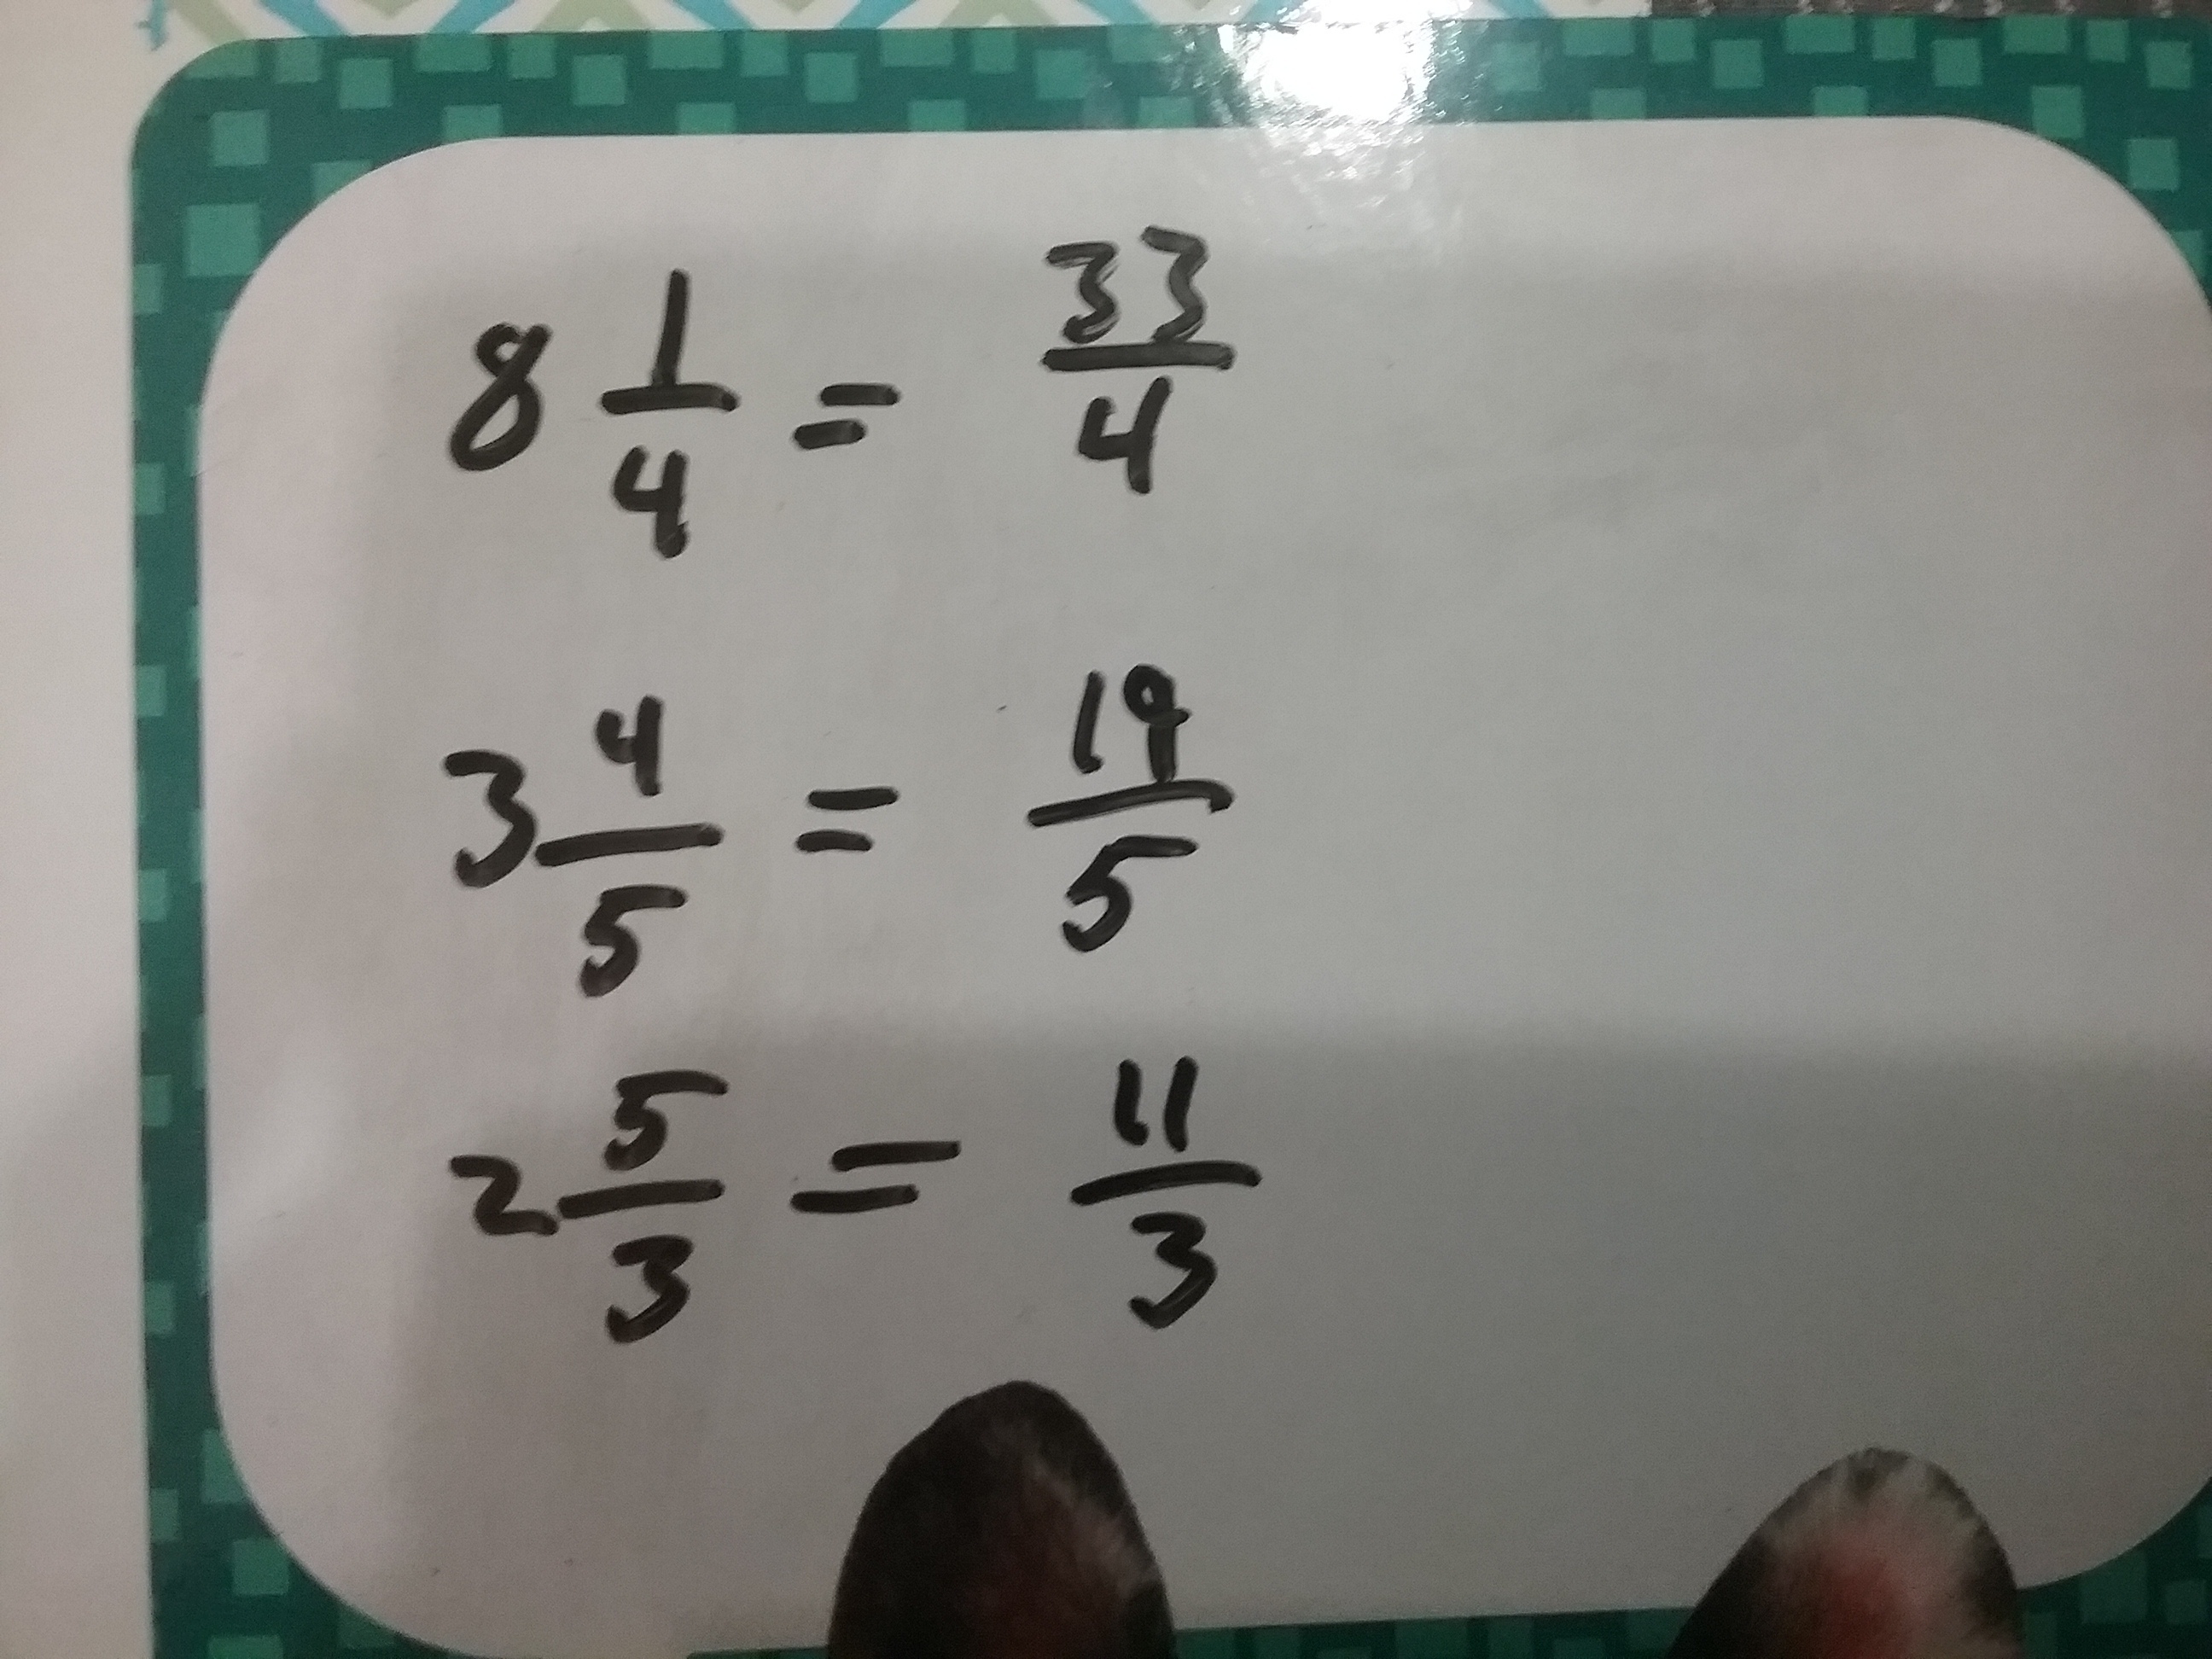 8 1/4 = 33/4
3 4/5 = 19/5
2 5/3 = 11/3